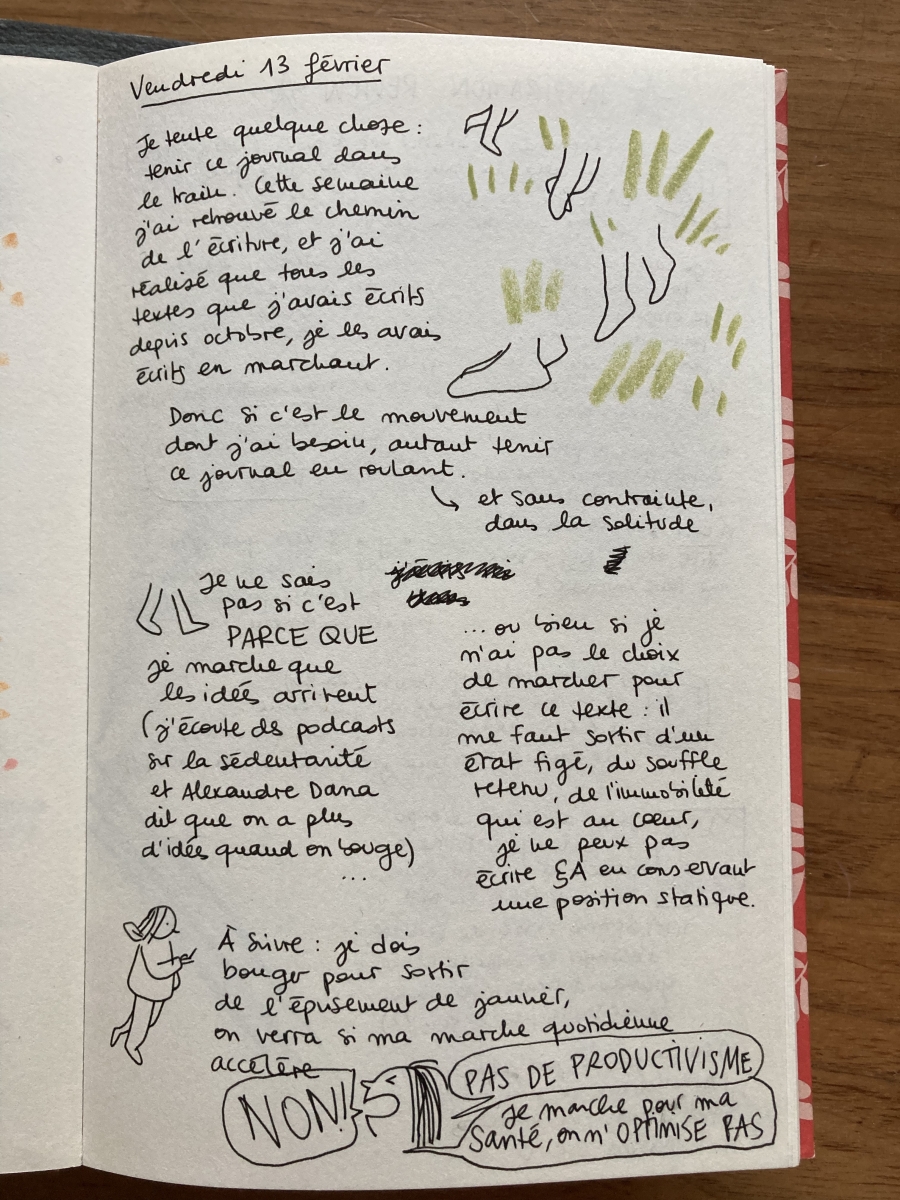 Vendredi 13 février
Je tente quelque chose :
tenir ce journal dans
le train. Cette semaine
j'ai retrouvé le chemin
de l'écriture, et j'ai
réalisé que tous les
textes que j'avais écrits
depuis octobre, je les avais
écrits en marchant.
Donc si c'est le mouvement
dont j'ai besoin, autant tenir
ce journal en roulant.
et sans contrainte,
dans la solitude
Je ne sais
pas si c'est
PARCE QUE
je marche que
les idées arrivent
(j'écoute des podcasts
sur la sédentarité
et Alexandre Dana
dit que on a plus
d'idées quand on bouge)
...
...ou bien si je
n'ai pas le choix
de marcher pour
écrire ce texte : il
me faut sortir d'un
état figé, du souffle
retenu, de l'immobilité
qui est au cœur,
je ne peux pas
écrire ÇA en conservant
une position statique.
À suivre : je dois
bouger pour sortir
de l'épuisement de janvier,
on verra si ma marche quotidienne
accélère
NON!
PAS DE PRODUCTIVISME
je marche pour ma
santé, on n'OPTIMISE PAS